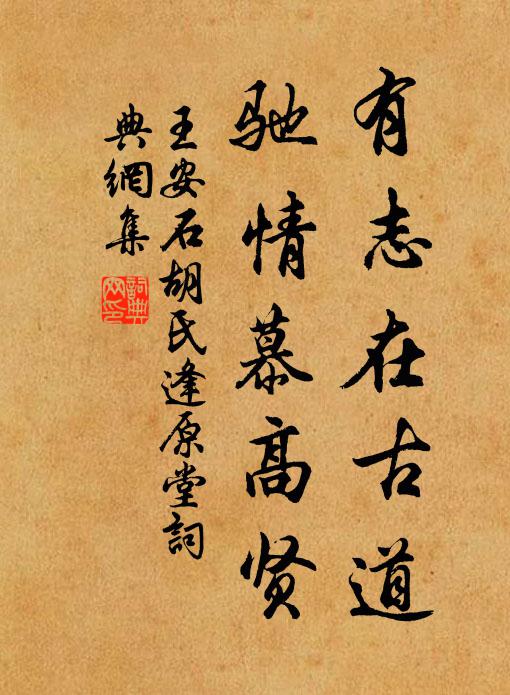 有志在古道
驰情慕高贤
王安石胡氏逢原堂词
典網集
詞典網印